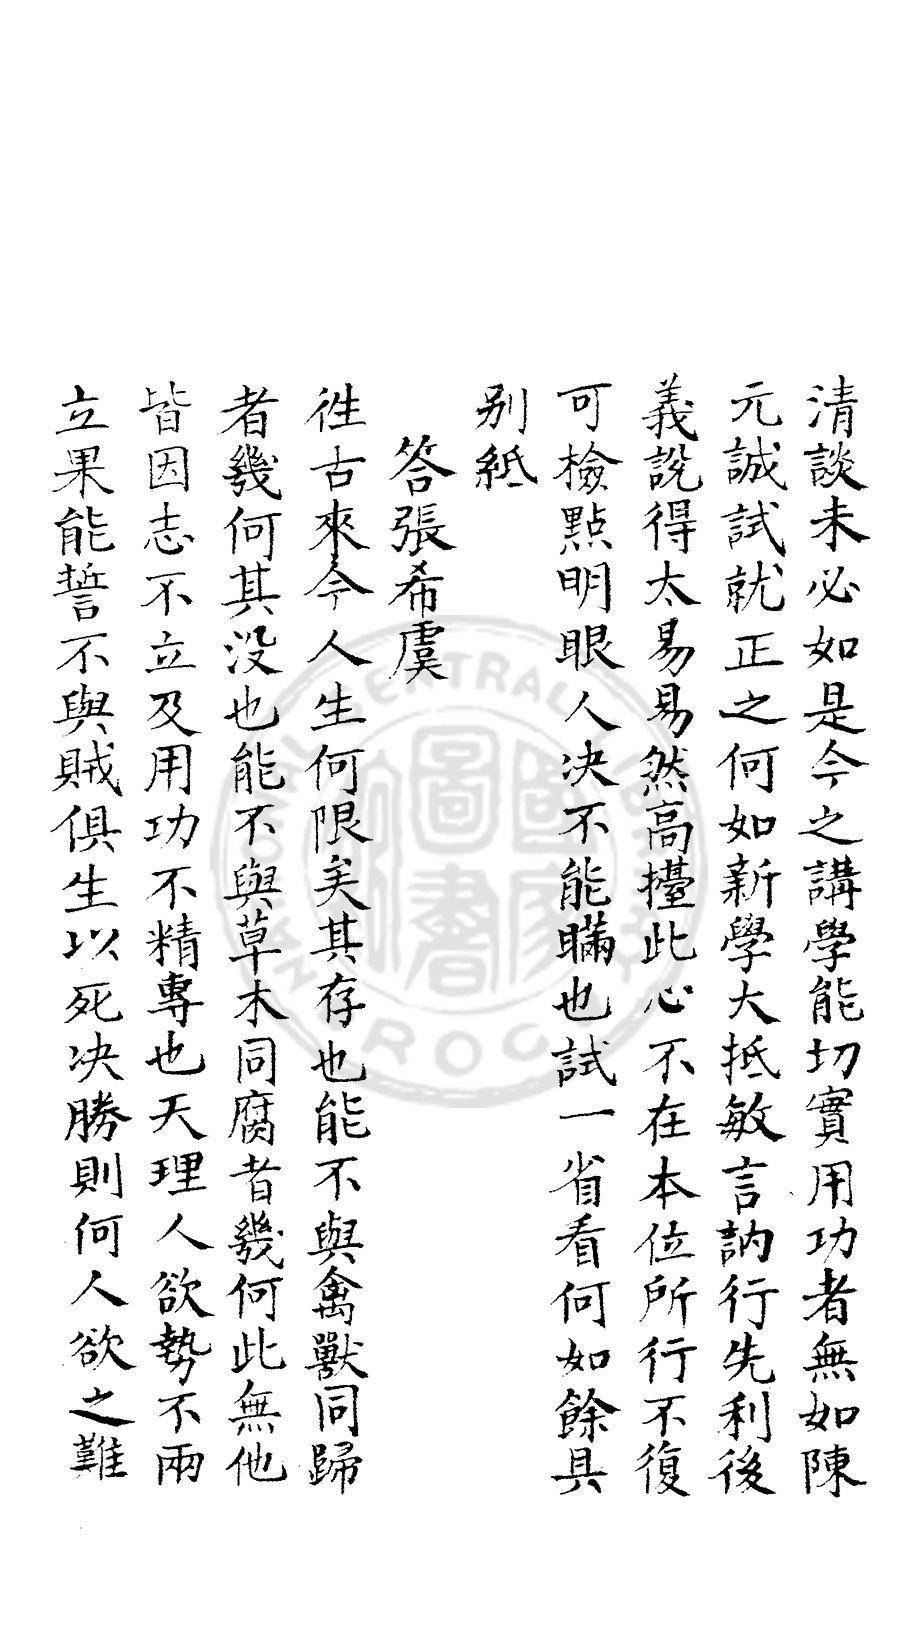 清談未必如是今之講學能切實用功者無如陳
元誠試就正之何如新學大抵敏言訥行先利後
義說得太易易然高擡此心不在本位所行不復
可檢點明眼人决不能瞞也試一省看何如餘具
别紙
答張希虞
徃古來今人生何限美其存也能不與禽獸同歸
者幾何其没也能不與草木同腐者幾何此無他
皆因志不立及用功不精專也天理人欲勢不兩
立果能誓不與賊俱生以死决勝則何人欲之難
NATIONAL CENTRAL LIBRARY
R.O.C.
國家圖書館